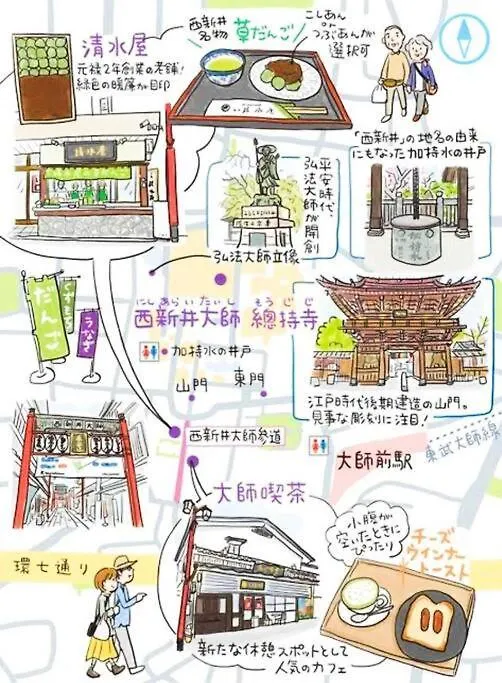 清水屋
元禄2年創業の老舗!
緑色の暖簾が目印
西新井
名物
草だんご
こしあん
or
つぶあんが
選択可
清水屋
「西新井」の地名の由来
にもなった加持水の井戸
平安時代
弘法大師が開創
加持水
弘法大師立像
にしあらいたいし そうじじ
西新井大師 總持寺
加持水の井戸
山門
東門
江戸時代後期建造の山門。
見事な彫刻に注目!
くさもち
だんご
うなぎ
西新井大師
西新井大師参道
東武大師線
大師前駅
大師喫茶
小腹が
空いたときに
ぴったり
チーズ
ウインナー
トースト
環七通り
新たな休憩スポットとして
人気のカフェ